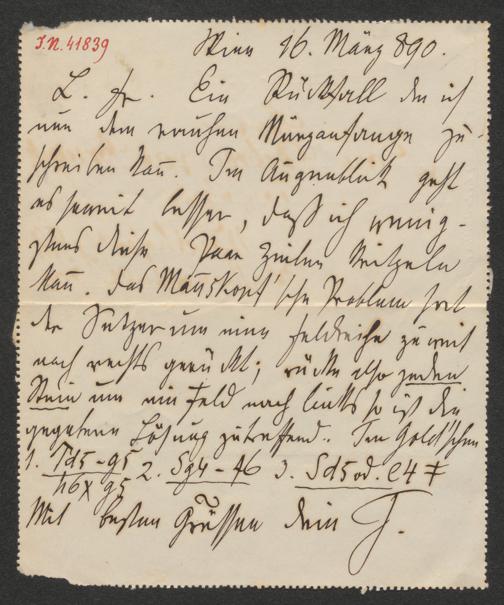 J.N. 41839
Wien 16. März 890.
L. Fr. Ein Rückfall den ich
nur dem rauhen Märzanfange zu-
schreiben kañ. Im Augenblick geht
es somit besser, daß ich wenig-
stens diese Paar Zeilen kritzeln
kañ. Das Mañskopf'sche Problem hat
der Setzer um eine Feldreihe zu weit
nach rechts gerückt; rücke also jeden
Stein um ein Feld nach links so ist die
gegebene Lösung zutreffend. Im Gold'schen
1. Td5-g5 2. Sg4-f6 3. Sd5 od. e4 ‡
h6 x g5
Mit besten Grüssen dein J.